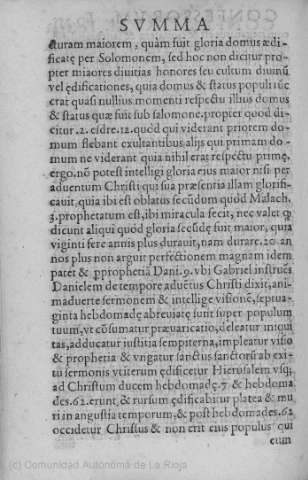 SVMMA
cturam maiorem, quàm fuit gloria domus ædi
ficatę per Solomonem, sed hoc non dicitur pro
pter maiores diuitias honores seu cultum diuinũ
vel ędificationes, quia domus & status populi tũc
erat quasi nullius momenti respectu illius domus
& status quæ fuit sub salomone, propter quod di
citur. 2. esdre. 12. quòd qui viderant priorem do
mum flebant exultantibus alijs qui primam do
mum ne viderant quia nihil erat respectu primę,
ergo. nõ potest intelligi gloria eius maior nisi per
aduentum Christi qui sua præsentia illam glorifi
cauit, quia ibi est oblatus secũdum quòd Malach.
3. prophetatum est, ibi miracula fecit, nec valet qđ
dicunt aliqui quòd gloria secũdę fuit maior, quia
viginti fere annis plus durauit, nam durare. 20. an
nos plus non arguit perfectionem magnam idem
patet & ꝓprophetia Dani. 9. vbi Gabriel instruẽs
Danielem de tempore aduẽtus Christi dixit, ani-
maduerte sermonem & intellige visionẽ, septua-
ginta hebdomadę abreuiatę sunt super populum
tuum, vt cõsumatur præuaricatio, deleatur iniqui
tas, adducatur iustitia sempiterna, impleatur visio
& prophetia & vngatur sanctus sanctorũ ab exi-
tu sermonis vt iterum ędificetur Hierusalem vsq;
ad Christum ducem hebdomadę. 7. & hebdoma
des. 62. erunt, & rursum ędificabitur platea & mu
ri in angustia temporum, & post hebdomades. 62
occidetur Christus & non erit eius populus qui
eum
(c) Comunidad Autónoma de La Rioja